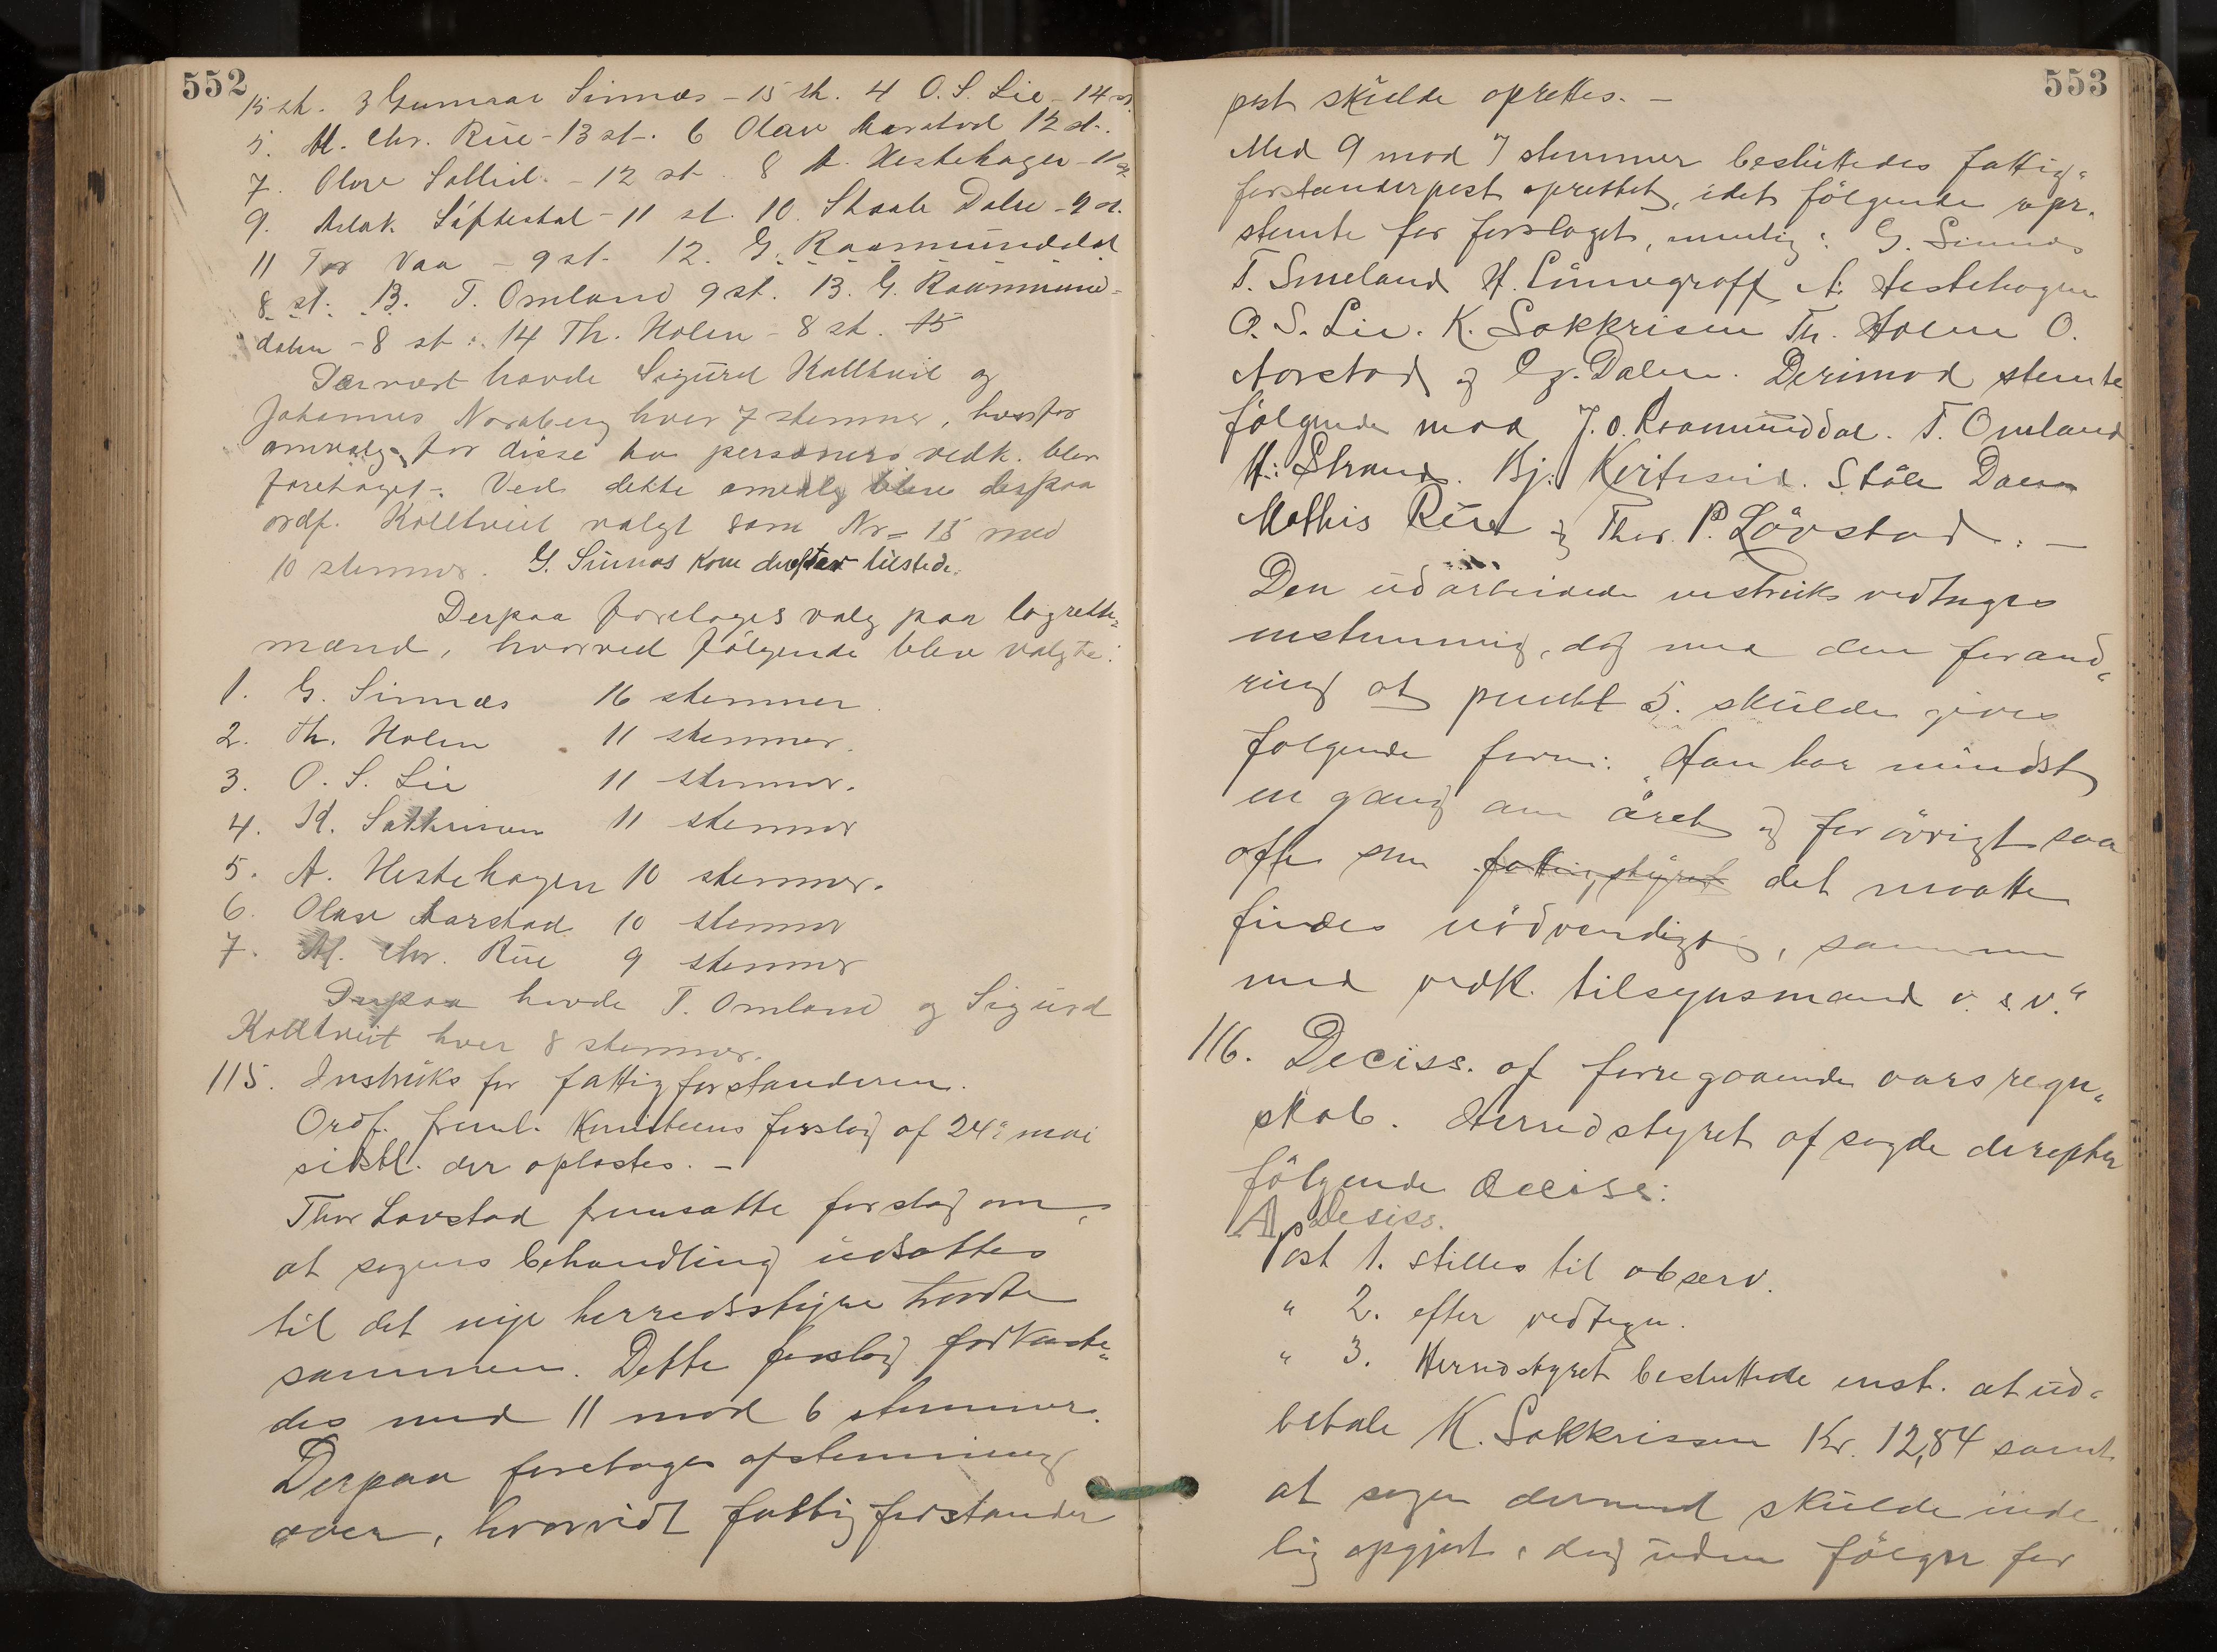 552
15 st. 3 Gunnar Sinnæs - 15 st. 4 O. S. Lie - 14 st.
5. M. Chr. Rue - 13 st. 6 Olav Aarstod 12 st.
7. Olav Sollid - 12 st. 8 A. Hestehagen - 11 st.
9. Aslak Siftestad - 11 st. 10. Staale Dalen - 9 st.
11 Tor Vaa - 9 st. 12. G. Raamunddal
8 st. 13. T. Omland 9 st. 13. G. Raamund-
dalen - 8 st. 14 Th. Holen - 8 st. 15
Dernæst havde Sigurd Kolltveit og
Johannes Nordberg hver 7 stemmer, hvorfor
omvalg for disse to personers vedk. blev
foretaget. Ved dette omvalg blev derpaa
ordf. Kolltveit valgt som Nr. 15 med
10 stemmer. G. Sinnæs kom derefter tilstede.
Derpaa foretoges valg paa lagrette-
mænd, hvorved følgende blev valgte:
1. G. Sinnæs 16 stemmer.
2. Th. Holen 11 stemmer.
3. O. S. Lie 11 stemmer.
4. K. Sakkrisen 11 stemmer
5. A. Hestehagen 10 stemmer.
6. Olav Aarstad 10 stemmer
7. M. Chr. Rue 9 stemmer
Derpaa havde T. Omland og Sigurd
Kolltveit hver 8 stemmer.
115. Instruks for fattigforstanderen.
Ordf. freml. Komiteens forslag af 24de mai
sidstl. der oplæstes. -
Thor Lövstad fremsatte forslag om,
at sagens behandling udsættes
til det nye herredsstyre trædte
sammen. Dette forslag forkaste-
des med 11 mod 6 stemmer.
Derpaa foretoges afstemning
over, hvorvidt fattigforstander
553
post skulde oprettes. -
Med 9 mod 7 stemmer besluttedes fattig-
forstanderpost oprettet, idet følgende repr.
stemte for forslaget, nemlig: G. Sinnæs
T. Smeland H. Linnegroff A. Hestehagen
O. S. Lie. K. Sakkrisen Th. Holen O.
Aarstad og Gg. Dalen. Derimod stemte
følgende mod J. O. Raamunddal. T. Omland
H. Strand. Bj. Kivitsveid. Ståle Dalen
Mathis Rue og Thor P. Lövstad. -
Den udarbeidede instruks vedtoges
enstemmig, dog med den forand-
ring at punkt 5. skulde gives
følgende form: "Han har mindst
en gang om året og forövrigt saa
ofte som fattigstyret det maatte
findes nödvendigt, sammen
med vedk. tilsynsmand o. s. v."
116. Deciss. af forregaaende aars regn-
skab. Herredstyret afsagde derefter
følgende deciss:
A Desiss.
Post 1. stilles til observ.
" 2. efter vedtegn.
" 3. Herredstyret besluttede enst. at ud-
betale K. Sakkrissen Kr. 12,84 samt
at sagen dermed skulde ende-
lig opgjort, dog uden følger for